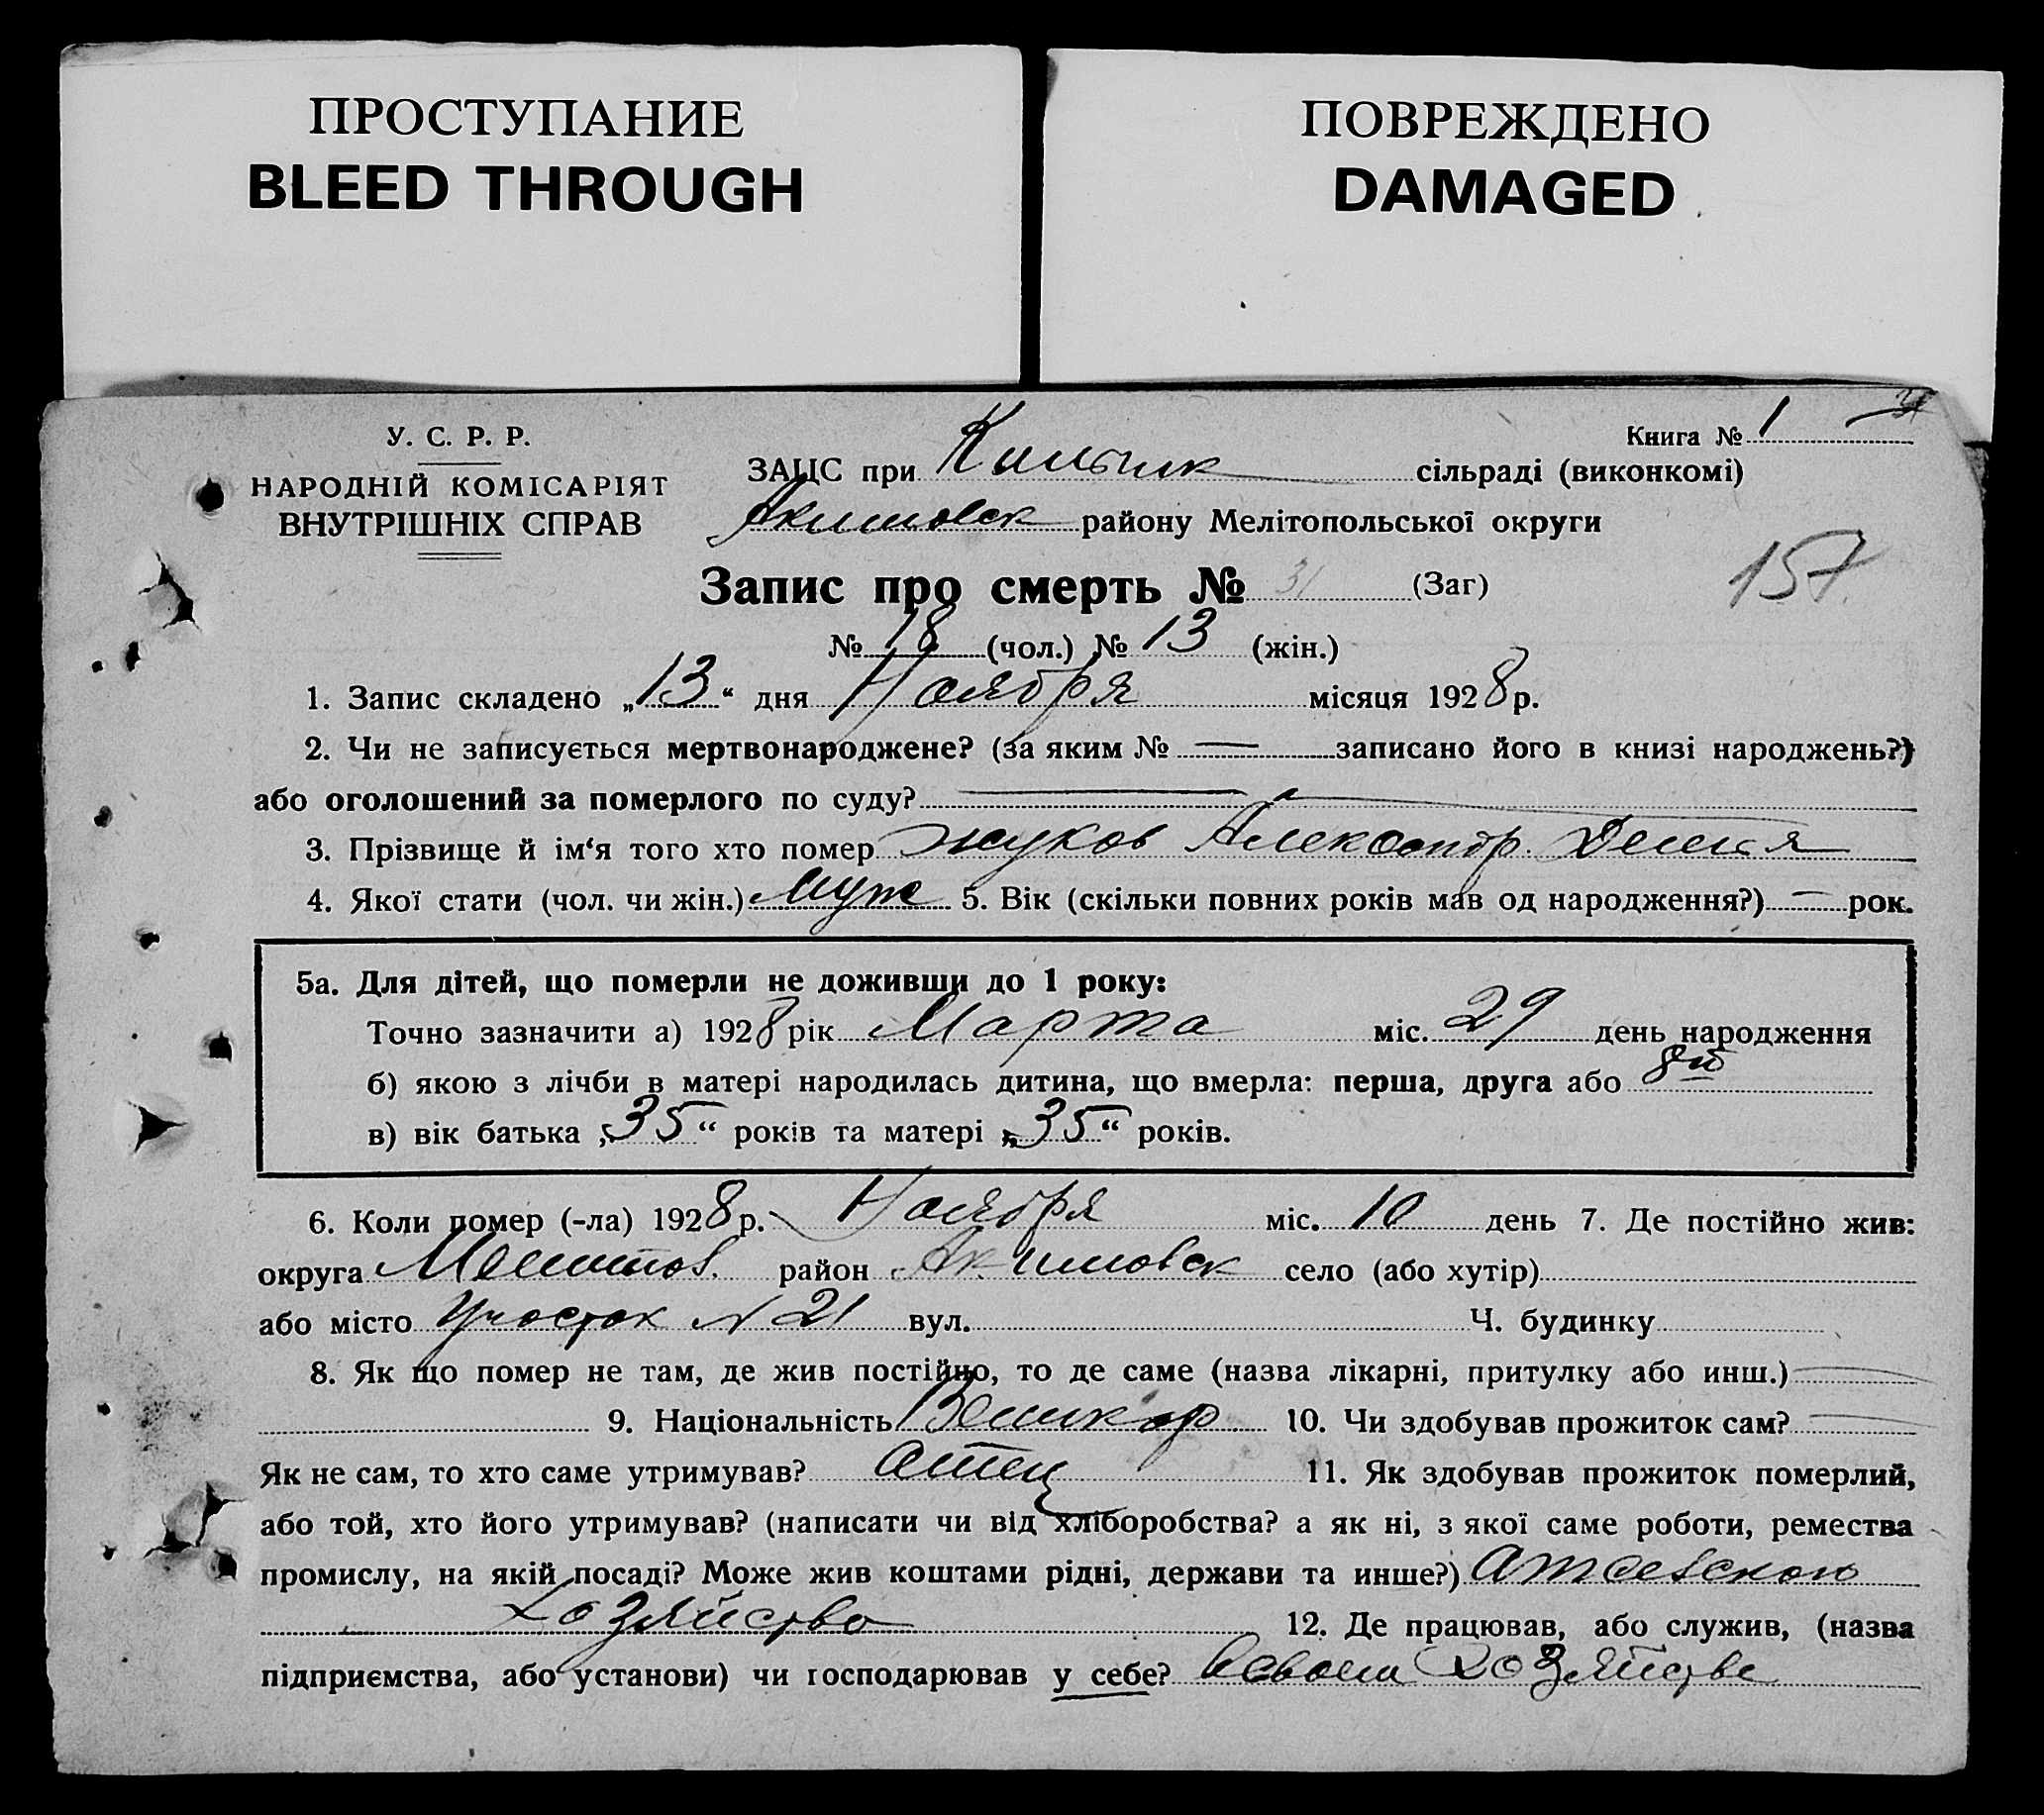 ПРОСТУПАНИЕ
BLEED THROUGH
ПОВРЕЖДЕНО
DAMAGED
У. С. Р. Р.
НАРОДНІЙ КОМІСАРІЯТ
ВНУТРІШНІХ СПРАВ
Книга № 1
ЗАЦС при сільраді (виконкомі)
Акимовск району Мелітопольської округи
157
Запис про смерть № 31 (Заг)
№ 18 (чол.) № 13 (жін.)
1. Запис складено „13“ дня Ноября місяця 1928 р.
2. Чи не записується мертвонароджене? (за яким № — записано його в книзі народжень?)
або оголошений за померлого по суду? —
3. Прізвище й ім‘я того хто помер Жуков Александр
4. Якої стати (чол. чи жін.) Муж 5. Вік (скільки повних років мав од народження?) — рок.
5а. Для дітей, що померли не доживши до 1 року:
Точно зазначити а) 1928 рік Марта міс. 29 день народження
б) якою з лічби в матері народилась дитина, що вмерла: перша, друга або 8й
в) вік батька „35“ років та матері „35“ років.
6. Коли помер (-ла) 1928 р. Ноября міс. 10 день 7. Де постійно жив:
округа Мелитоп. район Акимовск село (або хутір)
або місто Участок № 21 вул. Ч. будинку
8. Як що помер не там, де жив постійно, то де саме (назва лікарні, притулку або инш.) —
9. Національність Великор 10. Чи здобував прожиток сам? —
Як не сам, то хто саме утримував? атец 11. Як здобував прожиток померлий,
або той, хто його утримував? (написати чи від хліборобства? а як ні, з якої саме роботи, ремества
промислу, на якій посаді? Може жив коштами рідні, держави та инше?)
хозяйство 12. Де працював, або служив, (назва
підприємства, або установи) чи господарював у себе? в своем хозяйстве